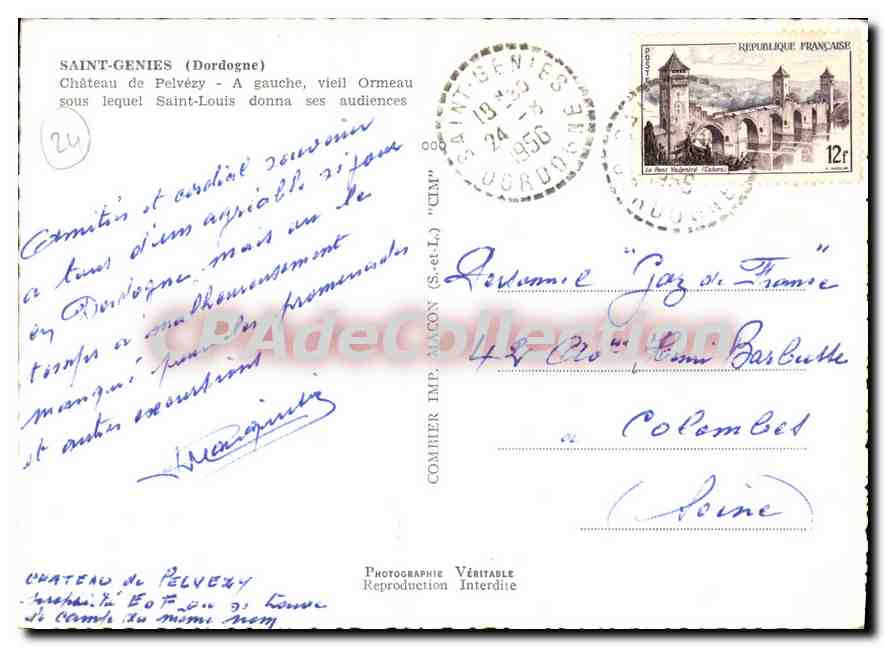 SAINT-GENIES (Dordogne)
Château de Pelvézy - A gauche, vieil Ormeau
sous lequel Saint-Louis donna ses audiences
24
Amitiés et cordial souvenir
a tous d'un agréable séjour
en Dordogne, mais ou le
temps a malheureusement
manqué pour les promenades
et autres excursions
CHATEAU de PELVEZY
propriété EDF ou se trouve
le camp du même nom
COMBIER IMP. MACON (S.-et-L.) "CIM"
PHOTOGRAPHIE VÉRITABLE
Reproduction Interdite
SAINT-GENIES
18 30
24 -8
1956
DORDOGNE
REPUBLIQUE FRANÇAISE
POSTES
Le Pont Valentré (Cahors)
12F
1956
DORDOGNE
Personnel "Gaz de France"
42 Henri Barbusse
a Colombes
(Seine)
CPAdeCollection.com